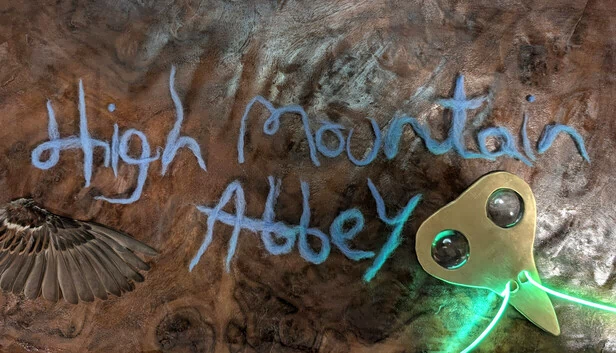 High Mountain
Abbey